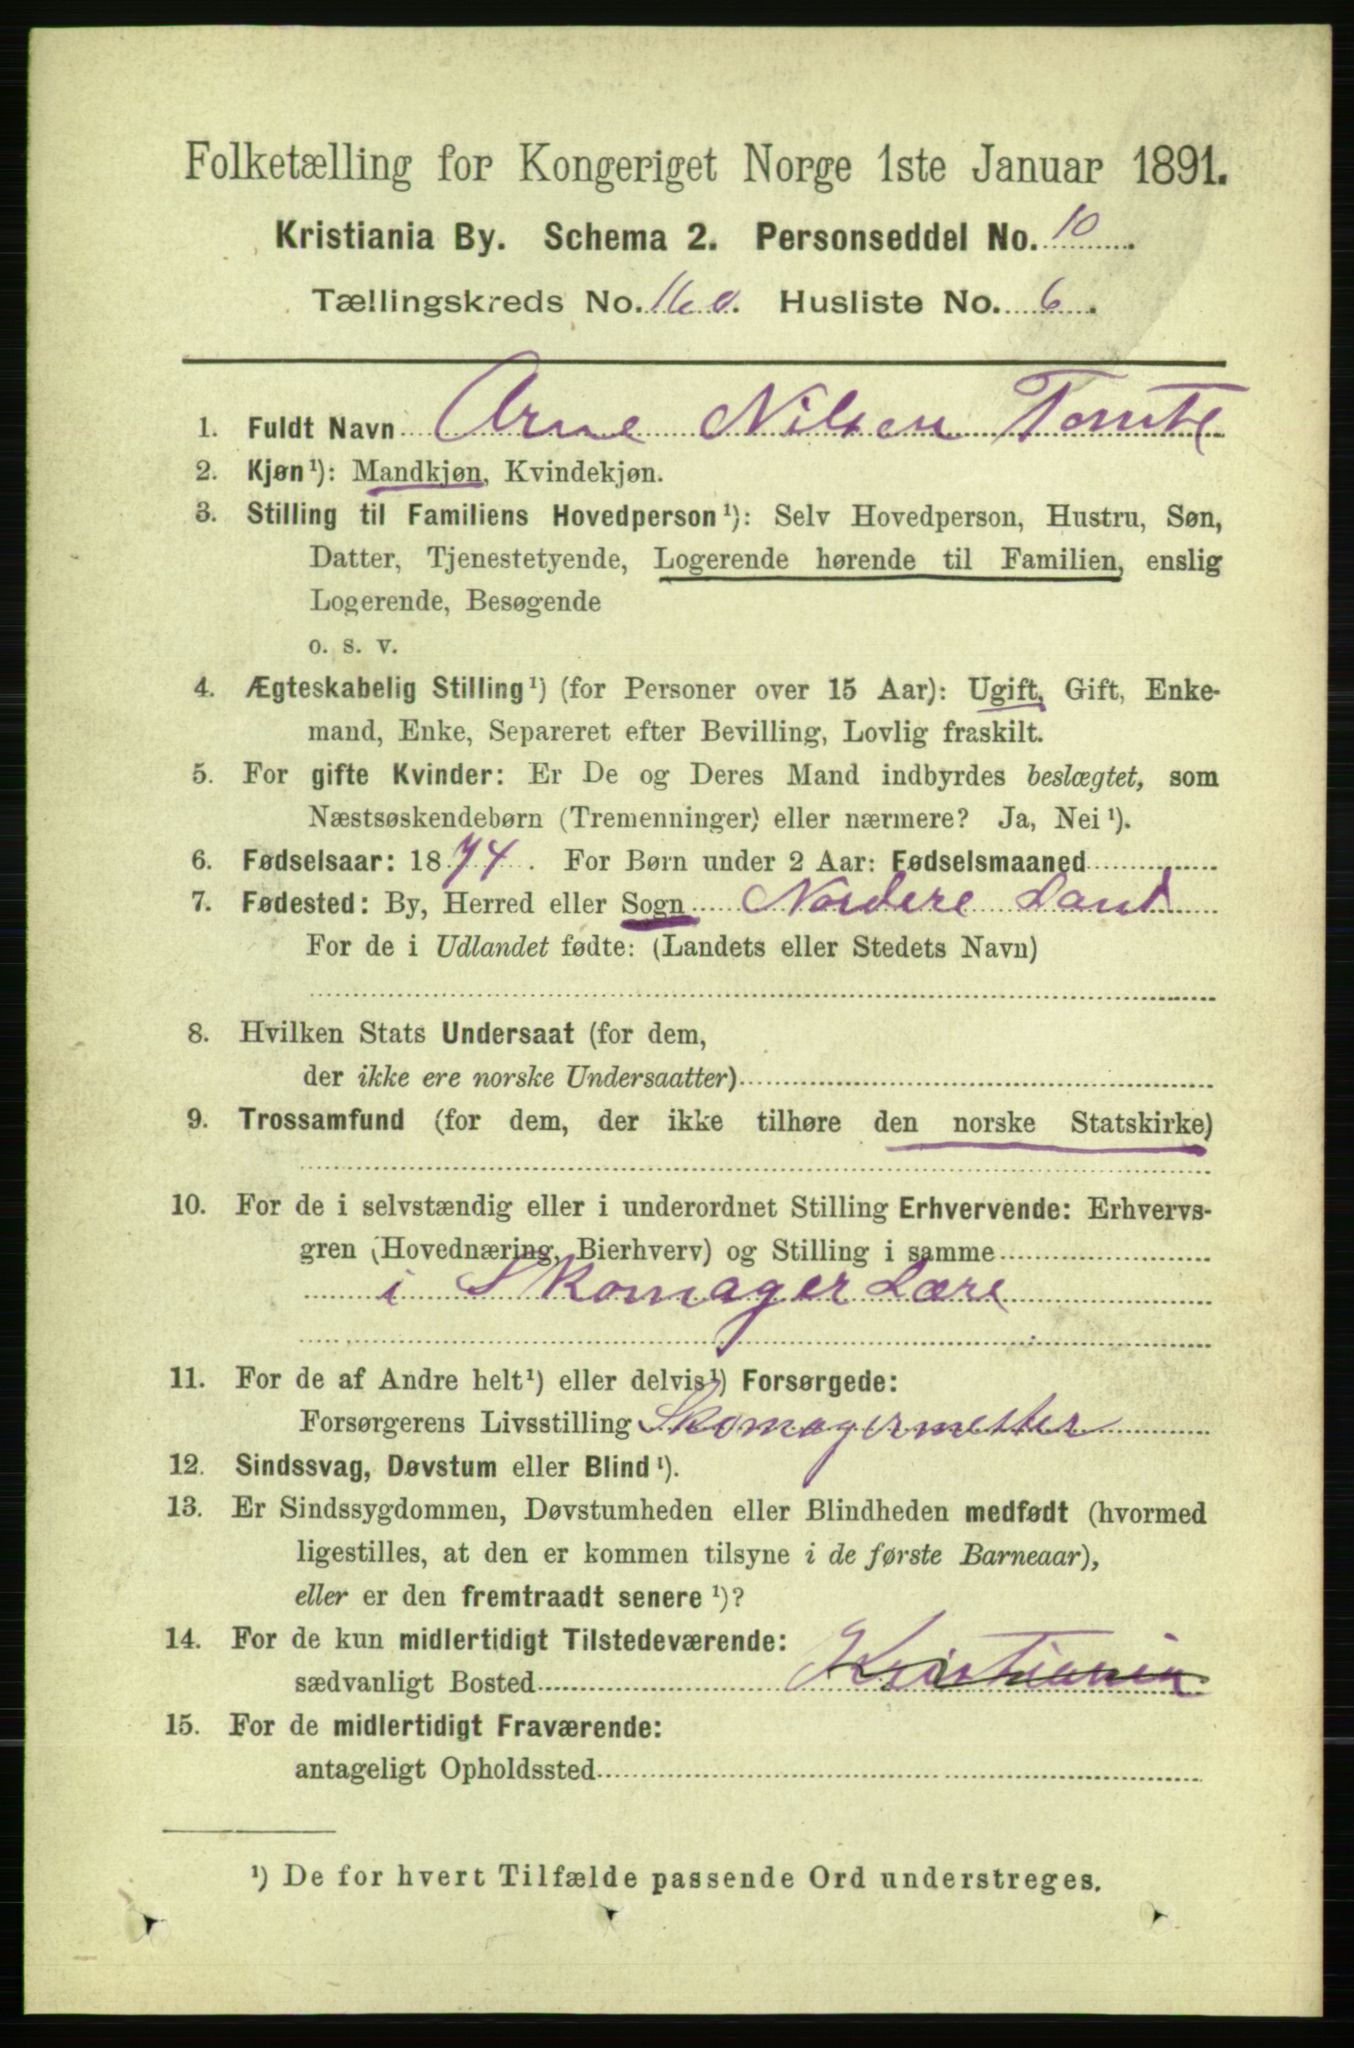 Folketælling for Kongeriget Norge 1ste Januar 1891.
Kristiania By. Schema 2. Personseddel No. 10.
Tællingskreds No. 160. Husliste No. 6.
1. Fuldt Navn Arne Nilsen Tomte
2. Kjøn¹): Mandkjøn, Kvindekjøn.
3. Stilling til Familiens Hovedperson¹): Selv Hovedperson, Hustru, Søn,
Datter, Tjenestetyende, Logerende hørende til Familien, enslig
Logerende, Besøgende
o. s. v.
4. Ægteskabelig Stilling¹) (for Personer over 15 Aar): Ugift, Gift, Enke-
mand, Enke, Separeret efter Bevilling, Lovlig fraskilt.
5. For gifte Kvinder: Er De og Deres Mand indbyrdes beslægtet, som
Næstsøskendebørn (Tremenninger) eller nærmere? Ja, Nei¹).
6. Fødselsaar: 1874. For Børn under 2 Aar: Fødselsmaaned
7. Fødested: By, Herred eller Sogn Nordere Land
For de i Udlandet fødte: (Landets eller Stedets Navn)
8. Hvilken Stats Undersaat (for dem,
der ikke ere norske Undersaatter)
9. Trossamfund (for dem, der ikke tilhøre den norske Statskirke)
10. For de i selvstændig eller i underordnet Stilling Erhvervende: Erhvervs-
gren (Hovednæring, Bierhverv) og Stilling i samme
i Skomager Lære
11. For de af Andre helt¹) eller delvis¹) Forsørgede:
Forsørgerens Livsstilling Skomagermester
12. Sindssvag, Døvstum eller Blind¹).
13. Er Sindssygdommen, Døvstumheden eller Blindheden medfødt (hvormed
ligestilles, at den er kommen tilsyne i de første Barneaar),
eller er den fremtraadt senere¹)?
14. For de kun midlertidigt Tilstedeværende:
sædvanligt Bosted Kristiania
15. For de midlertidigt Fraværende:
antageligt Opholdssted
¹) De for hvert Tilfælde passende Ord understreges.